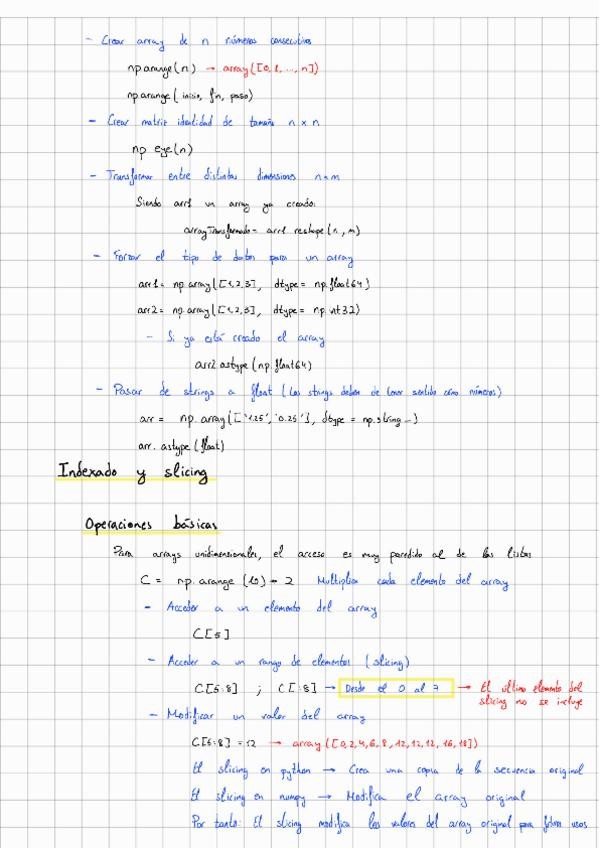 - Crear array de n números consecutivos
np.arange(n) → array([0, 1, ..., n])
np.arange(inicio, fin, paso)
- Crear matriz identidad de tamaño n x n
np.eye(n)
- Transformar entre distintas dimensiones n x m
Siendo arr1 un array ya creado:
arrayTransformado = arr1.reshape(n, m)
- Forzar el tipo de datos para un array
arr1 = np.array([1,2,3], dtype = np.float64)
arr2 = np.array([1,2,3], dtype = np.int32)
- Si ya está creado el array
arr2.astype(np.float64)
- Pasar de strings a float (Los strings deben de tener sentido como números)
arr = np.array(['1.25', '0.25'], dtype = np.string_)
arr.astype(float)
Indexado y slicing
Operaciones básicas
Para arrays unidimensionales, el acceso es muy parecido al de las listas
C = np.arange(10) * 2 Multiplica cada elemento del array
- Acceder a un elemento del array
C[5]
- Acceder a un rango de elementos (slicing)
C[5:8] ; C[:8] → Desde el 0 al 7 → El último elemento del
slicing no se incluye
- Modificar un valor del array
C[5:8] = 12 → array([0,2,4,6,8,12,12,12,16,18])
El slicing en python → Crea una copia de la secuencia original
El slicing en numpy → Modifica el array original
Por tanto: El slicing modifica los valores del array original para futuros usos